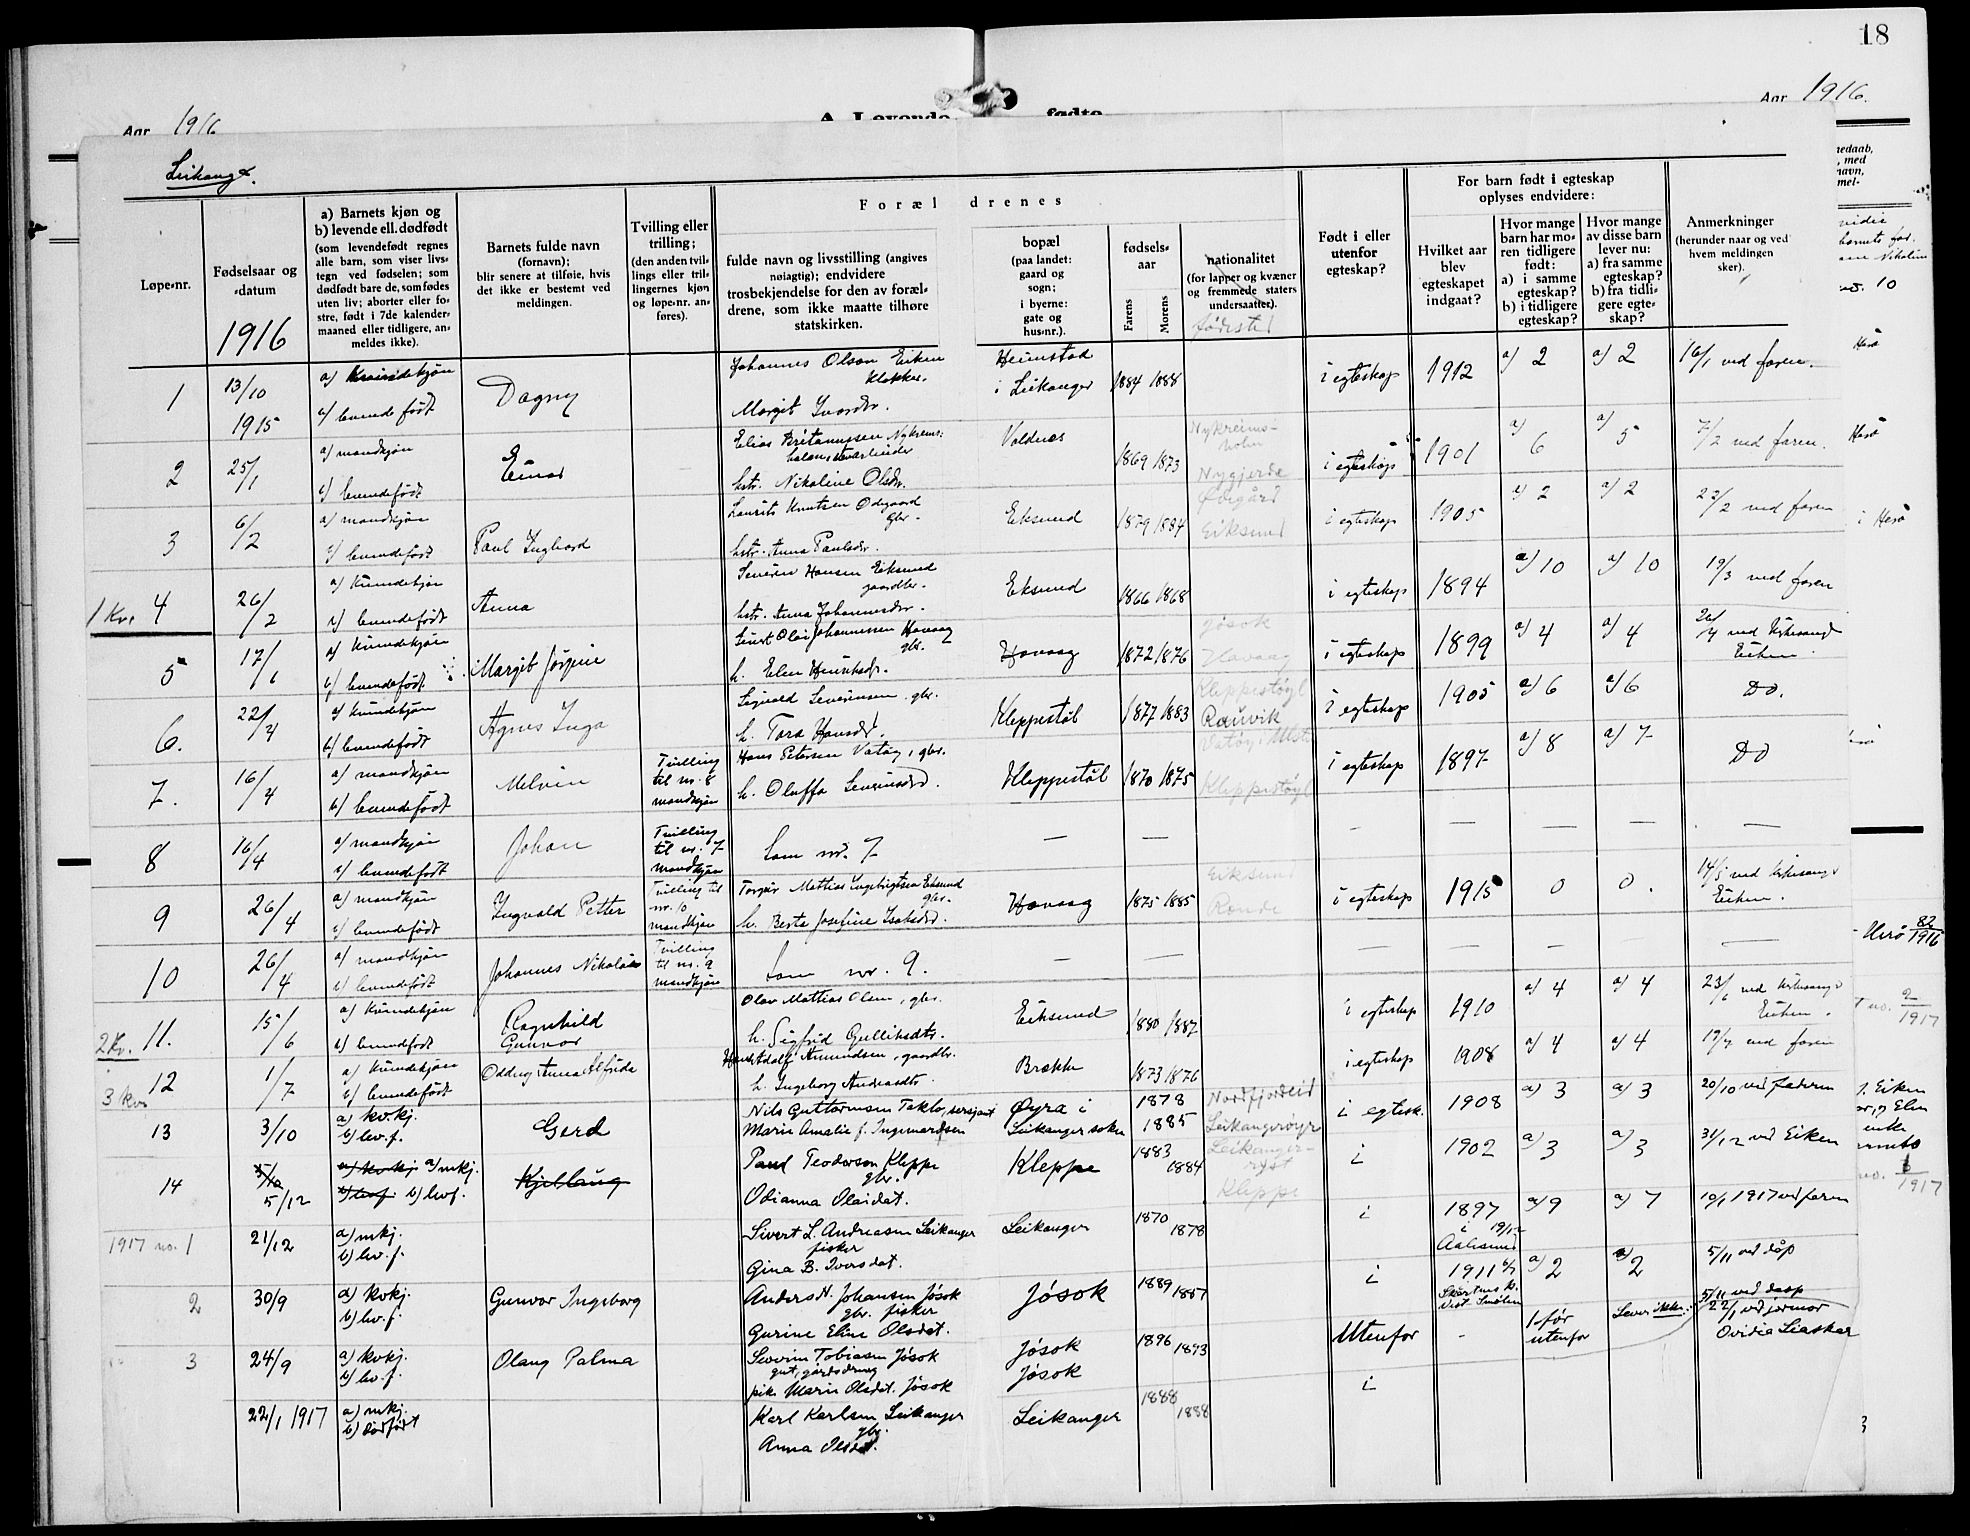 18
Aar 1916
Aar 1916.
A. Levende fødte
Leikanger.
Løpe=nr.
Fødselsaar og =datum
1916
a) Barnets kjøn og
b) levende ell. dødfødt
(som levendefødt regnes
alle barn, som viser livs=
tegn ved fødselen; som
dødfødt bare de, som fødes
uten liv; aborter eller fo=
stre, født i 7de kalender=
maaned eller tidligere, an=
meldes ikke).
Barnets fulde navn
(fornavn);
blir senere at tilføie, hvis
det ikke er bestemt ved
meldingen.
Tvilling eller
trilling;
(den anden tvil=
lings eller tril=
lingernes kjøn
og løpe=nr. an=
føres).
Forældrenes
fulde navn og livsstilling (angives
nøiagtig); endvidere
trosbekjendelse for den av foræl=
drene, som ikke maatte tilhøre
statskirken.
bopæl
(paa landet:
gaard og
sogn;
i byerne:
gate og
hus=nr.).
fødsels=
aar
Farens
Morens
nationalitet
(for lapper og kvæner
og fremmede staters
undersaatter).
fødested
Født i eller
utenfor
egteskap?
For barn født i egteskap
oplyses endvidere:
Hvilket aar
blev
egteskapet
indgaat?
Hvor mange
barn har mo=
ren tidligere
født:
a) i samme
egteskap?
b) i tidligere
egteskap?
Hvor mange
av disse barn
lever nu:
a) fra samme
egteskap?
b) fra tidli=
gere egte=
skap?
Anmerkninger
(herunder naar og ved
hvem meldingen
sker).
1 13/10 1915 a) Kvindekjøn b) levende født Dagny Johannes Olson Eiken Klokker. Margit Ivarsdr. Heimstad i Leikanger 1884 1888 i egteskap 1912 a) 2 a) 2 16/1 ved faren.
2 25/1 a) mandkjøn b) levendefødt Einar Elias hstr. Nikoline Olsdr. Voldnes 1869 1873 Nykreims-holm Nygjerde i egteskap 1901 a) 6 a) 5 7/2 ved faren.
3 6/2 a) mandkjøn b) levendefødt Paul Ingvard Laurits Knutsen Ødegaard gbr. hstr. Anna Paulsdr. Eksund 1879 1884 Øvegård Eiksund i egteskap 1905 a) 2 a) 2 22/2 ved faren
1 Kv. 4 26/2 a) Kvindekjøn b) levendefødt Anna Severin Hansen Eiksund gaardbr. hstr. Anna Johannesdr. Eksund 1866 1868 i egteskap 1894 a) 10 a) 10 19/3 ved faren
5 17/1 a) Kvindekjøn b) levendefødt Margit Jørgine Olai Johannessen Havaag gbr. h. Elen Henriksdr. Havaag 1872 1876 Jøsok Havaag i egteskap 1899 a) 4 a) 4 ved Kirkesang. Eiken.
6. 22/4 a) Kvindekjøn b) levendefødt Agnes Inga Sigvald Severinsen, gbr. h. Tora Hansdr. Kleppestøl 1877 1883 Kleppestøyl Rauvik i egteskap 1905 a) 6 a) 6 Do.
7. 16/4 a) mandkjøn b) levendefødt Melvin Tvilling til nr. 8 mandkjøn Hans Petersen Vatøy, gbr. h. Oluffa Severinsdr. Kleppestøl 1870 1875 Vatøy, Ulst. Kleppestøyl i egteskap 1897 a) 8 a) 7 Do
8 16/4 a) mandkjøn b) levendefødt Johan Tvilling til nr. 7 mandkjøn Som nr. 7 — — — — — — —
9 26/4 a) mandkjøn b) levendefødt Ingvald Petter Tvilling til nr. 10 mandkjøn Torger Mattias Ingebrigtsen Eksund gbr. h. Berta Josefine Isaksdr. Havaag 1875 1885 Eiksund Rande i egteskap 1915 0 0. 14/5 ved Kirkesang. Eiken.
10 26/4 a) mandkjøn b) levendefødt Johannes Nikolai Tvilling til nr. 9 mandkjøn Som nr. 9. — — — — — —
2 Kv. 11. 15/6 a) Kvindekjøn b) levendefødt Ragnhild Gunvor Olav Mattias Olsen, gbr. h. Sigfrid Gulliksdtr. Eiksund 1880 1887 i egteskap 1910 a) 4 a) 4 23/6 ved Kirkesang. Eiken.
12 1/7 a) Kvindekjøn b) levendefødt Oddny Anna Alfrida Amundsen, gaardbr. h. Ingeborg Andreasdtr. Brekke 1873 1876 i egteskap 1908 a) 4 a) 4 17/7 ved faren
3 Kv. 13 3/10 a) kvkj. b) lev. f. Gerd Nils Guttormsen Teklo, sersjant Marie Amalie f. Ingemardsen Øyra i Leikanger sokn 1878 1885 Nordfjordeid Leikangerøyr i egtesk. 1908 a) 3 a) 3 20/10 ved faderen
14 5/12 a) mkj. b) lev f. Kjellaug Paul Teodorsen Kleppe gbr. Odianna Olaidat. Kleppe 1883 1884 Leikanger-ryst Kleppe i 1902 a) 3 a) 3 31/12 ved Eiken
1917 no. 1 21/12 a) mkj. b) lev. f. Sivert L. Andreasen Leikanger fisker Gina B. Iversdat. Leikanger 1870 1878 i 1897 i Aalesund a) 9 a) 7 10/1 1917 ved faren
2 30/9 a) kvkj. b) lev. f. Gunvor Ingeborg Anders H. Johansen Jøsok gbr. fisker Gurine Eline Olsdat. Jøsok 1889 i 1911 a) 2 a) 2 5/11 ved dåp
3 24/9 a) kvkj. b) lev. f. Olaug Palma Severin Tobiasen Jøsok gut, gårdsdreng pik. Marie Olsdat. Jøsok Jøsok Jøsok 1896 1893 Utenfor - 1 før utenfor Lever ikke. 5/11 ved daap 22/1 ved jormor Ovidia Liaskar
22/1 1917 a) mkj. b) dødfødt Karl Karlsen Leikanger gbr. Anna Olsdat. Leikanger 1888 1888 i
Herø
Herø
i Herø
Herø 82/1916
no. 10
2/1917